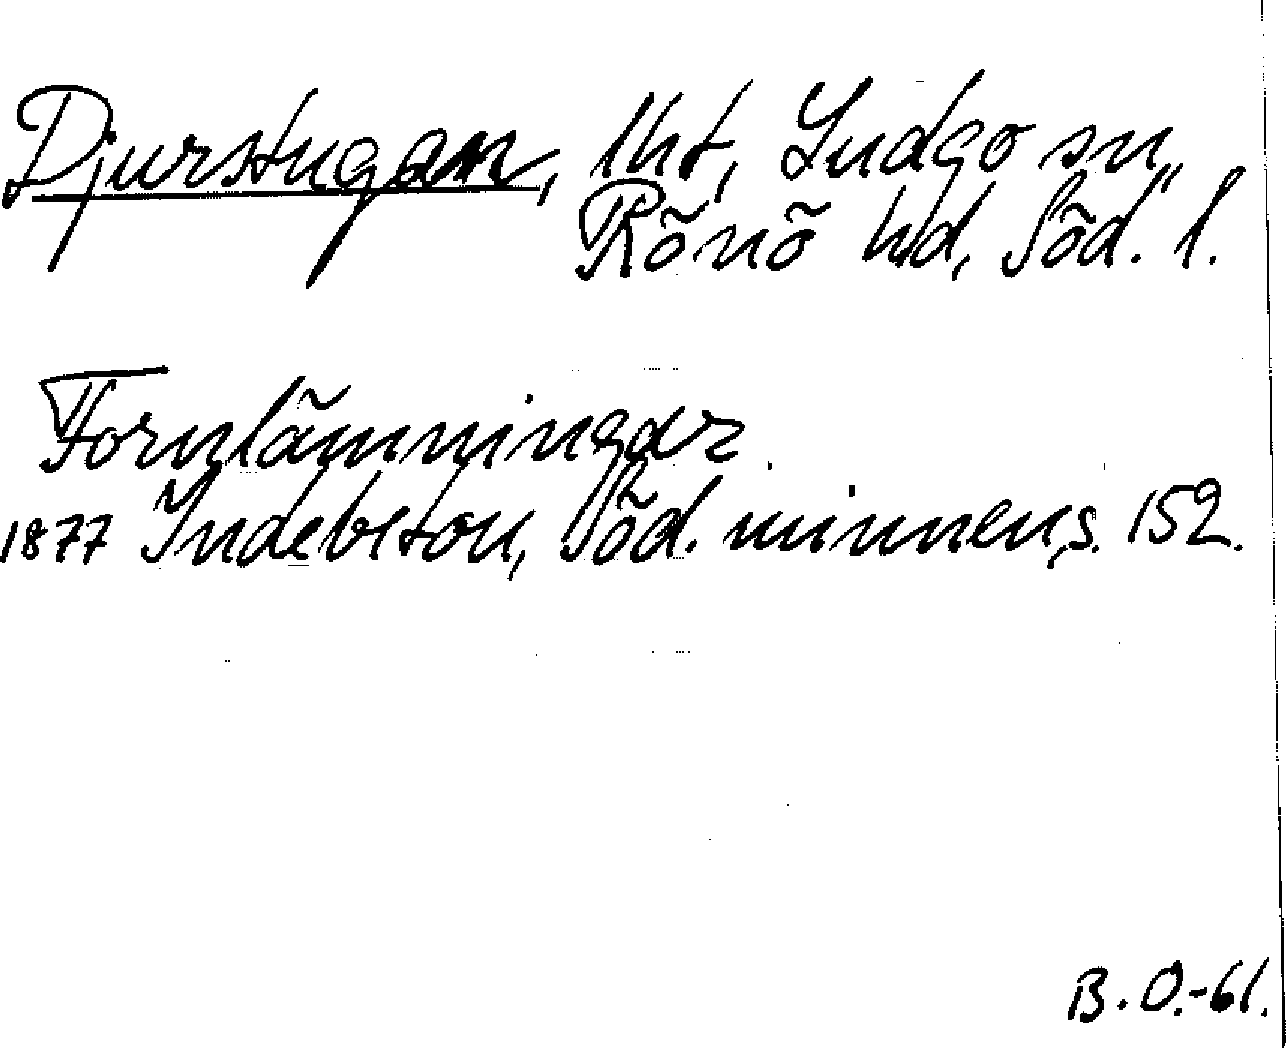 Djurstugan, lht, Ludgo sn,
Rönö hd, Söd. l.
Fornlämningar.
1877 Indebetou, Söd. minnen, s. 152.
B. O.-61.